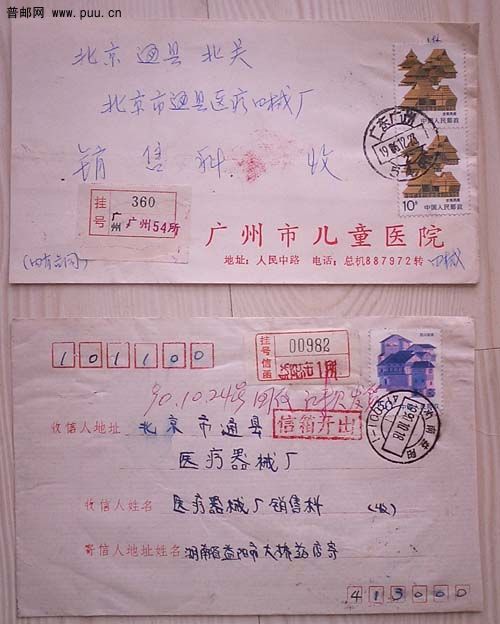 普邮网
www.puu.cn
北京 通县 北关
北京市通县医疗四械厂
销售科 收
挂号
360
广州
广州54所
中国人民邮政
中国人民邮政
10分
广东广州
广州市儿童医院
地址：人民中路 电话：总机887972转 四械
(内有合同)
101100
挂号信函
00982
益阳市1所
90.10.24号回信
信箱开出
收信人地址 北京市通县
医疗器械厂
收信人姓名 医疗器械厂销售科 (收)
寄信人地址姓名 湖南省益阳市大桥药店寄
湖南益阳
413000